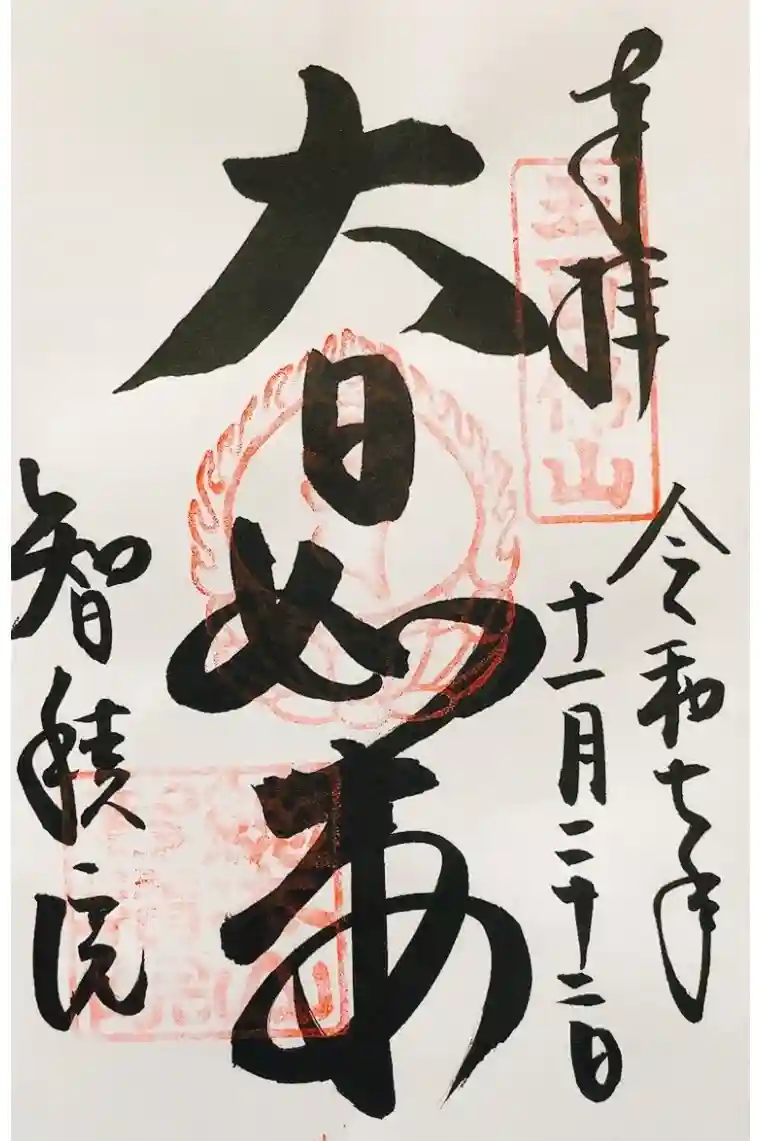 奉拝
五百佛山
令和七年
十一月二十二日
大日如来
智積院